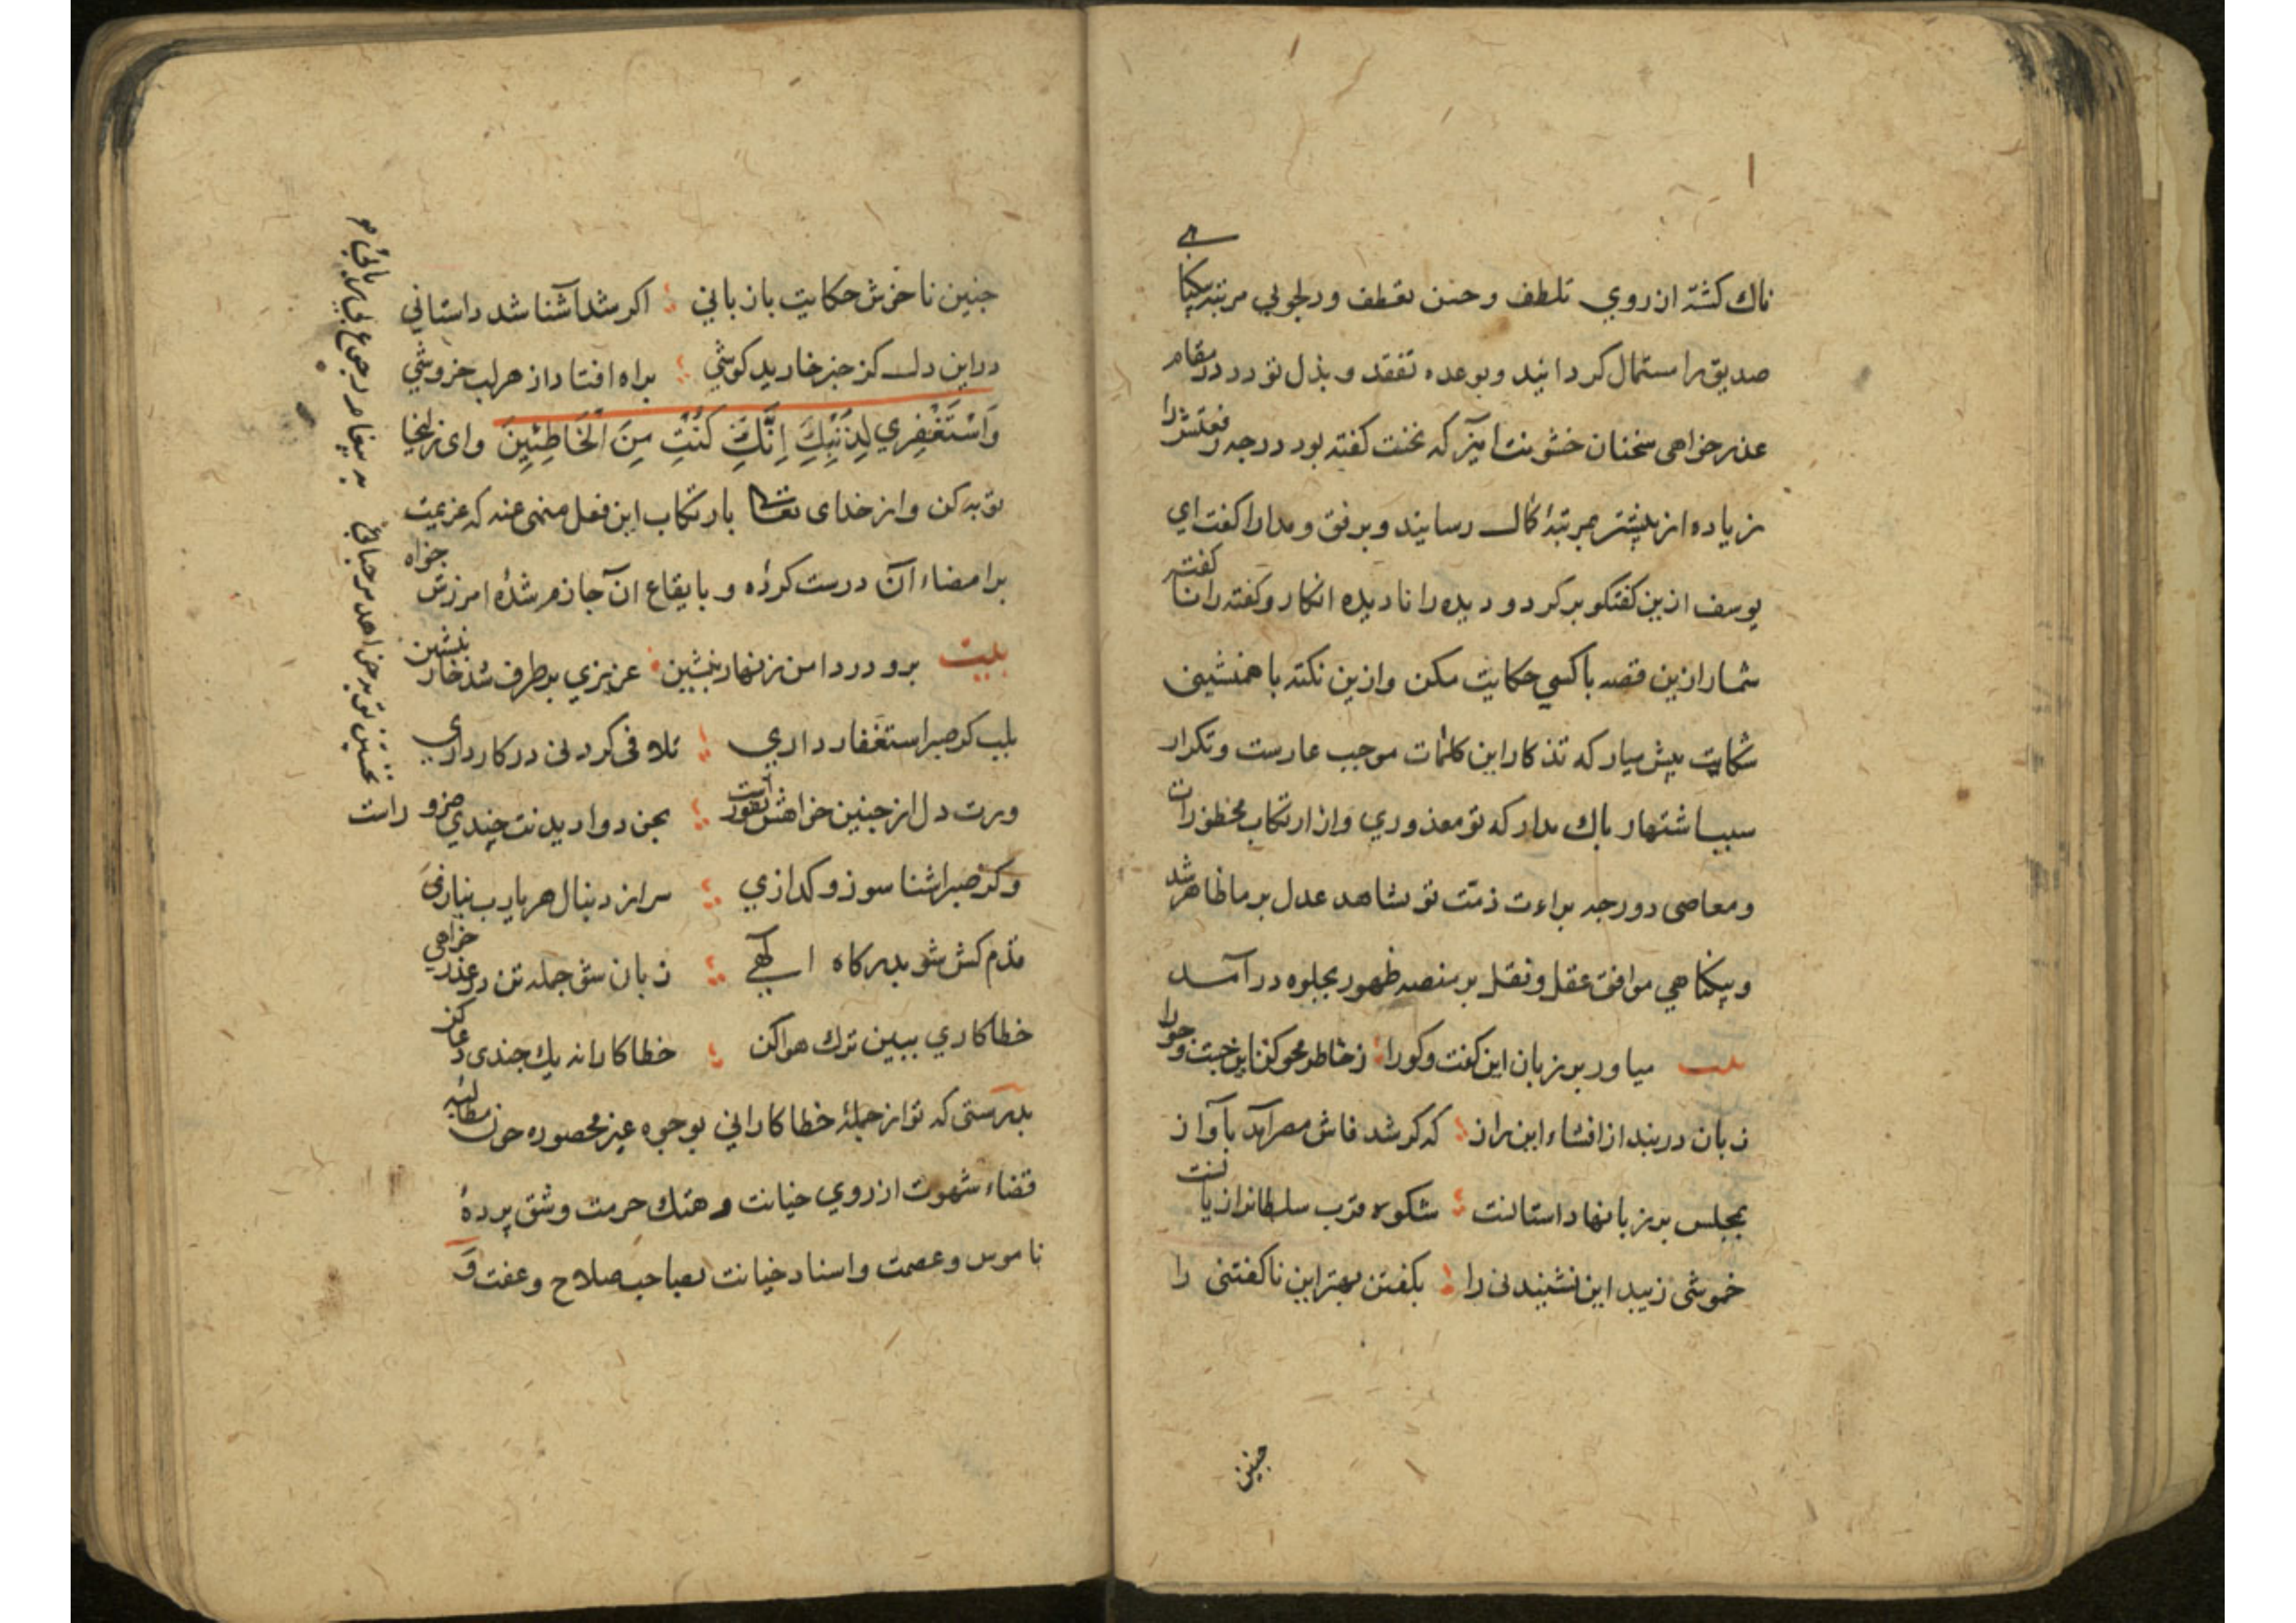 ناك كشته از روي تلطف و حسن تعطف ودلجويي مرتبه يكتائي
صديق را مستمال كردانيد وبوعده تفقد و بذل تودد در مقام
عذر خواهى سخنان خشونت اميز كه نخست كفته بود درجه رفعتش را
زياده از پيشتر بمرتبۀ كمال رسانيد وبرفق ومدارا كفت اي
يوسف ازين كفتكو بركرد و ديده را ناديده انكار وكفته را ناكفته
شمار ازين قصه با كسي حكايت مكن وازين نكته با همنشينى
شكايت پيش ميار كه تذكار اين كلمات موجب عارست وتكرار
سبب اشتهار باك مدار كه تو معذوري واز ارتكاب محظورات
ومعاصى دور چه براءت ذمّت تو بشاهد عدل بر ما ظاهر شد
وبيكناهي موافق عقل ونقل بر منصه ظهور بجلوه در آمد
بيت مياور بر زبان اين كفت وكورا زخاطر محو كن اين جست وجورا
زبان دربند از افشاء اين راز كه كر شد فاش مصر آيد بآواز
بمجلس بر زبانها داستانست شكوه قرب سلطانرا زيانست
خموشى زيبد اين نشنيدنى را نكفتن بهتر اين ناكفتنى را
جنين
جنين ناخوش حكايت با زباني اكر شد آشنا شد داستاني
دراين دل كز جز خاريد كوشي براه افتاد از هر لب خروشي
وَاسْتَغْفِرِي لِذَنْبِكِ اِنَّكِ كُنْتِ مِنَ الْخَاطِئِينَ واى زليخا
توبه كن واز خداى تعالى بارتكاب اين فعل منهى عنه كه عزيمت
بر امضاء آن درست كردۀ و بايقاع ان جازم شدۀ امرزش خواه
بيت برو در دامن زنهار بنشين عزيزي بر طرف شد خار بنشين
بلب كر صبر استغفار داري تلافى كردنى در كار داري
ورت دل از جنين خواهش نفورست
وكر صبر اشنا سوز وكدازي سر از دنبال هر يارب نيازى
قدم كش شو بدركاه الهي زبان شو جمله تن در عذر خواهي
خطاكاري ببين ترك هوا كن خطاكارانه يك جندى دعا كن
بدرستى كه تو از جملۀ خطاكاراني بوجوه غير محصوره چون مطالبه
قضاء شهوت از روي خيانت و هتك حرمت وشق پردۀ
ناموس وعصمت واسناد خيانت بصاحب صلاح وعفت وَ